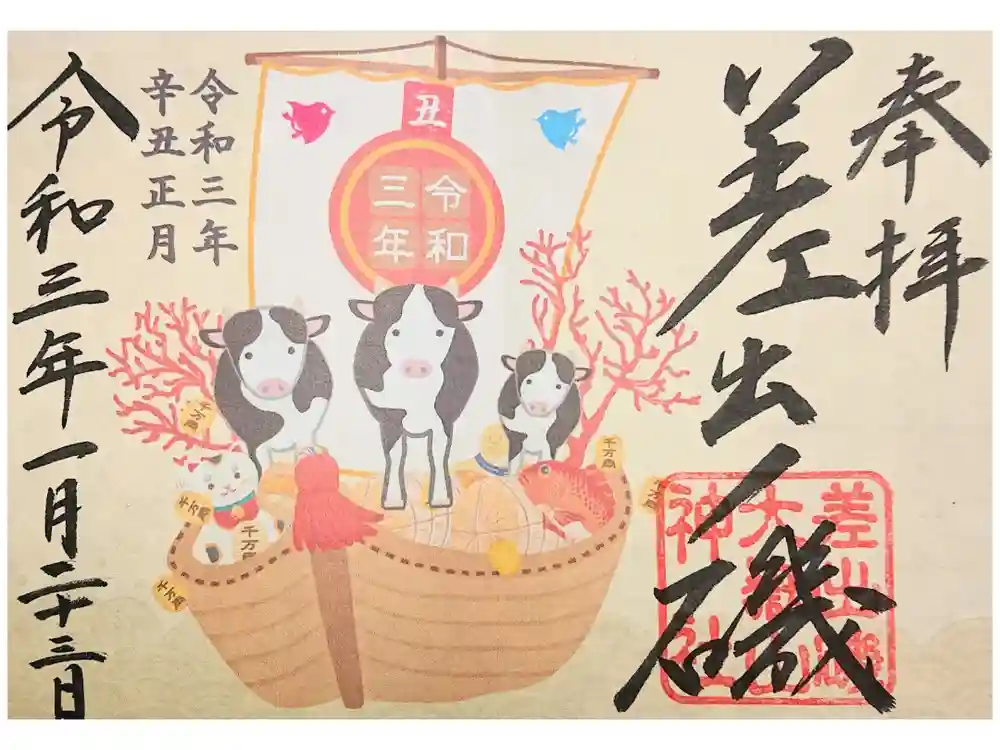 奉拝
差出ノ磯
差出磯
大嶽山
神社
丑
令和
三年
令和三年
辛丑正月
千万両
千万両
千万両
千万両
千万両
令和三年一月二十三日